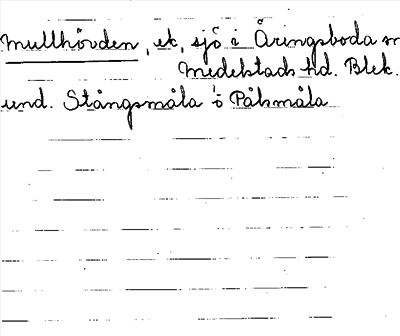 Mullhövden, ek, sjö i Åringsboda sn
Medelstads hd. Blek.
und. Stångsmåla o Påkmåla